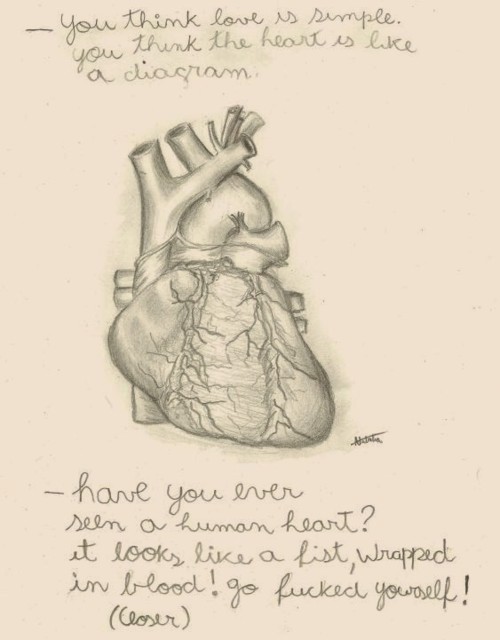 — you think love is simple.
you think the heart is like
a diagram.
- have you ever
seen a human heart?
it looks like a fist, wrapped
in blood! go fucked yourself!
(Closer)